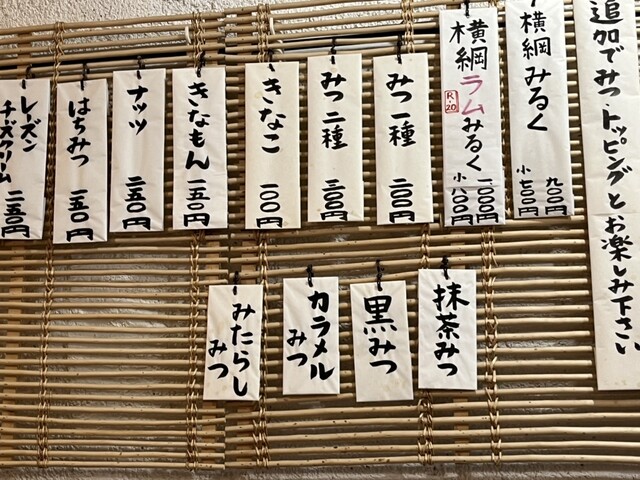 追加でみつ、トッピングとお楽しみ下さい
横綱みるく
九〇〇円
小七〇〇円
横綱ラムみるく
R-20
一、〇〇〇円
小八〇〇円
みつ一種
二〇〇円
みつ二種
三〇〇円
きなこ
一〇〇円
きなもん
一五〇円
ナッツ
二五〇円
はちみつ
一五〇円
レーズン
チーズクリーム
二五〇円
抹茶みつ
黒みつ
カラメル
みつ
みたらし
みつ